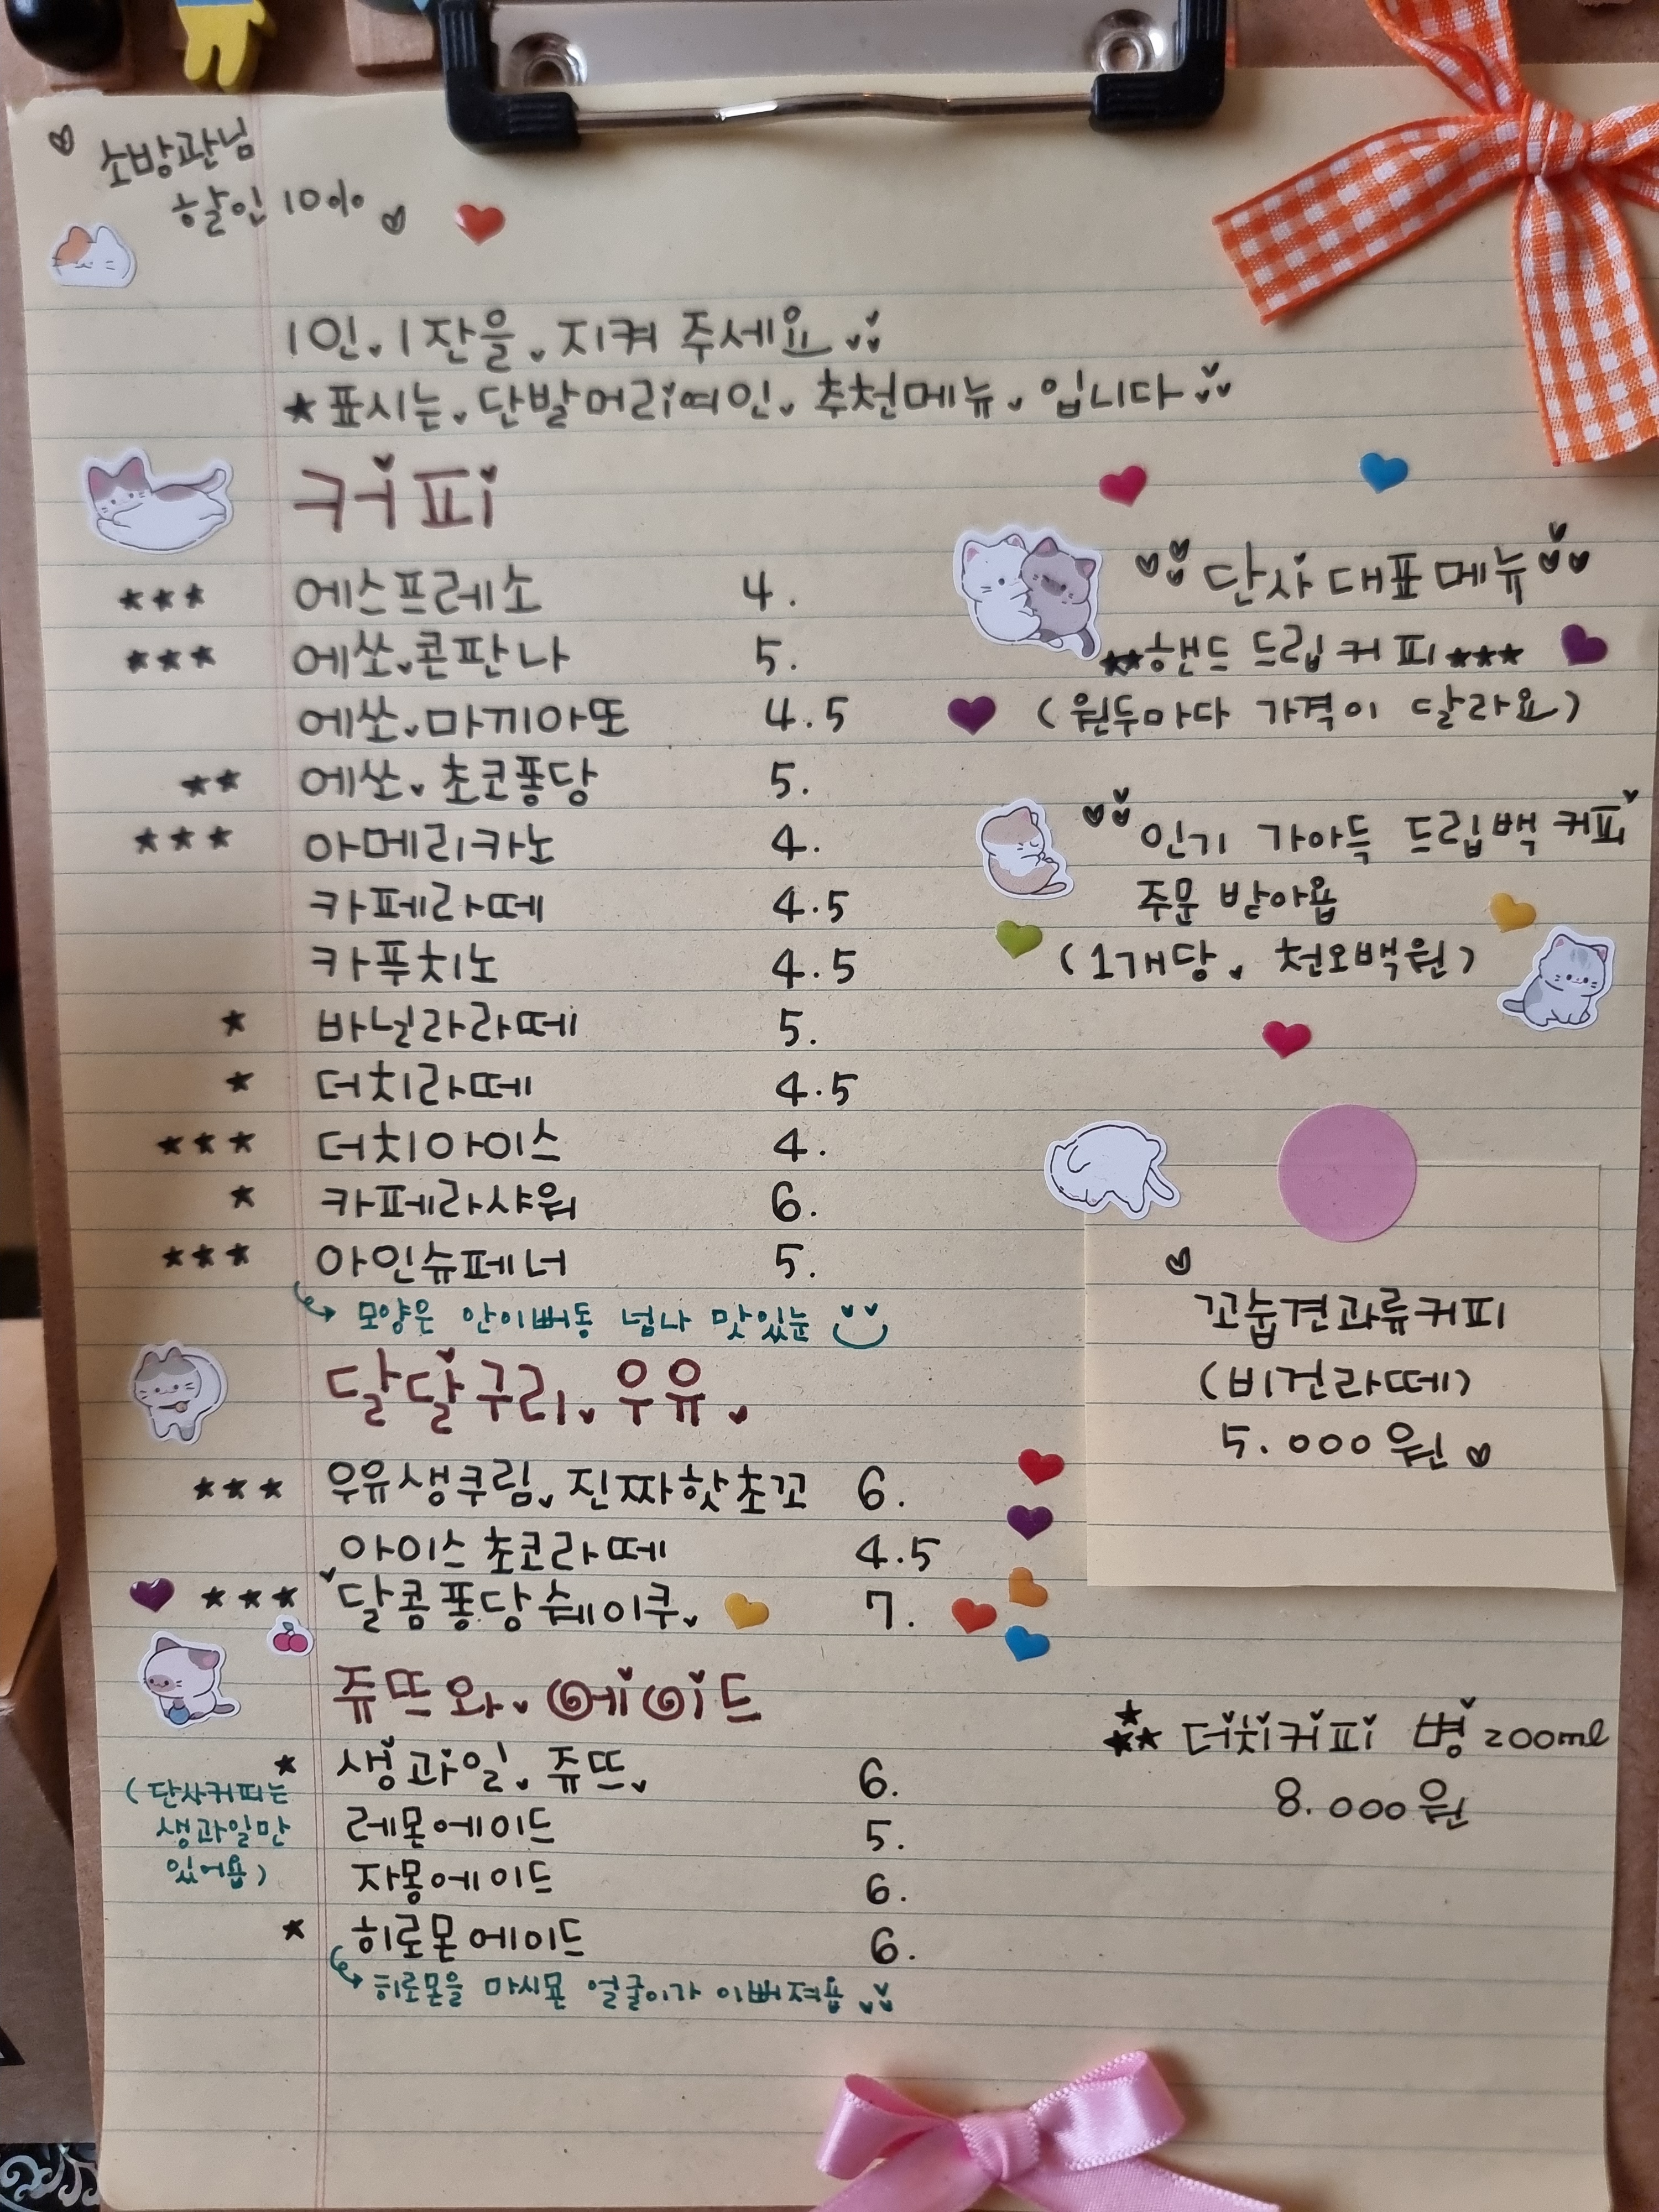 소방관님
할인 10%
1인. 1잔을. 지켜 주세요
★표시는. 단발머리여인. 추천메뉴. 입니다
커피
★★★ 에스프레소 4.
★★★ 에쏘.콘판나 5.
에쏘.마끼아또 4.5
★★ 에쏘.초코퐁당 5.
★★★ 아메리카노 4.
카페라떼 4.5
카푸치노 4.5
★ 바닐라라떼 5.
★ 더치라떼 4.5
★★★ 더치아이스 4.
★ 카페라샤워 6.
★★★ 아인슈페너 5.
모양은 안이뻐둥 넘나 맛있눈
달달구리. 우유.
★★★ 우유생쿠림. 진짜핫초꼬 6.
아이스 초코라떼 4.5
★★★ 달콤퐁당쉐이쿠. 7.
쥬뜨와. 에이드
★ 생과일. 쥬뜨. 6.
(단사커피는
생과일만
있어욥)
레몬에이드 5.
자몽에이드 6.
★ 히로몬에이드 6.
히로몬을 마시묜 얼굴이가 이뻐져욥
단사 대표 메뉴
★★핸드 드립 커피★★★
(원두마다 가격이 달라요)
인기 가아득 드립백 커피
주문 받아욥
(1개당. 천오백원)
꼬숩견과류커피
(비건라떼)
5.000원
★★★ 더치커피 병 200ml
8.000원